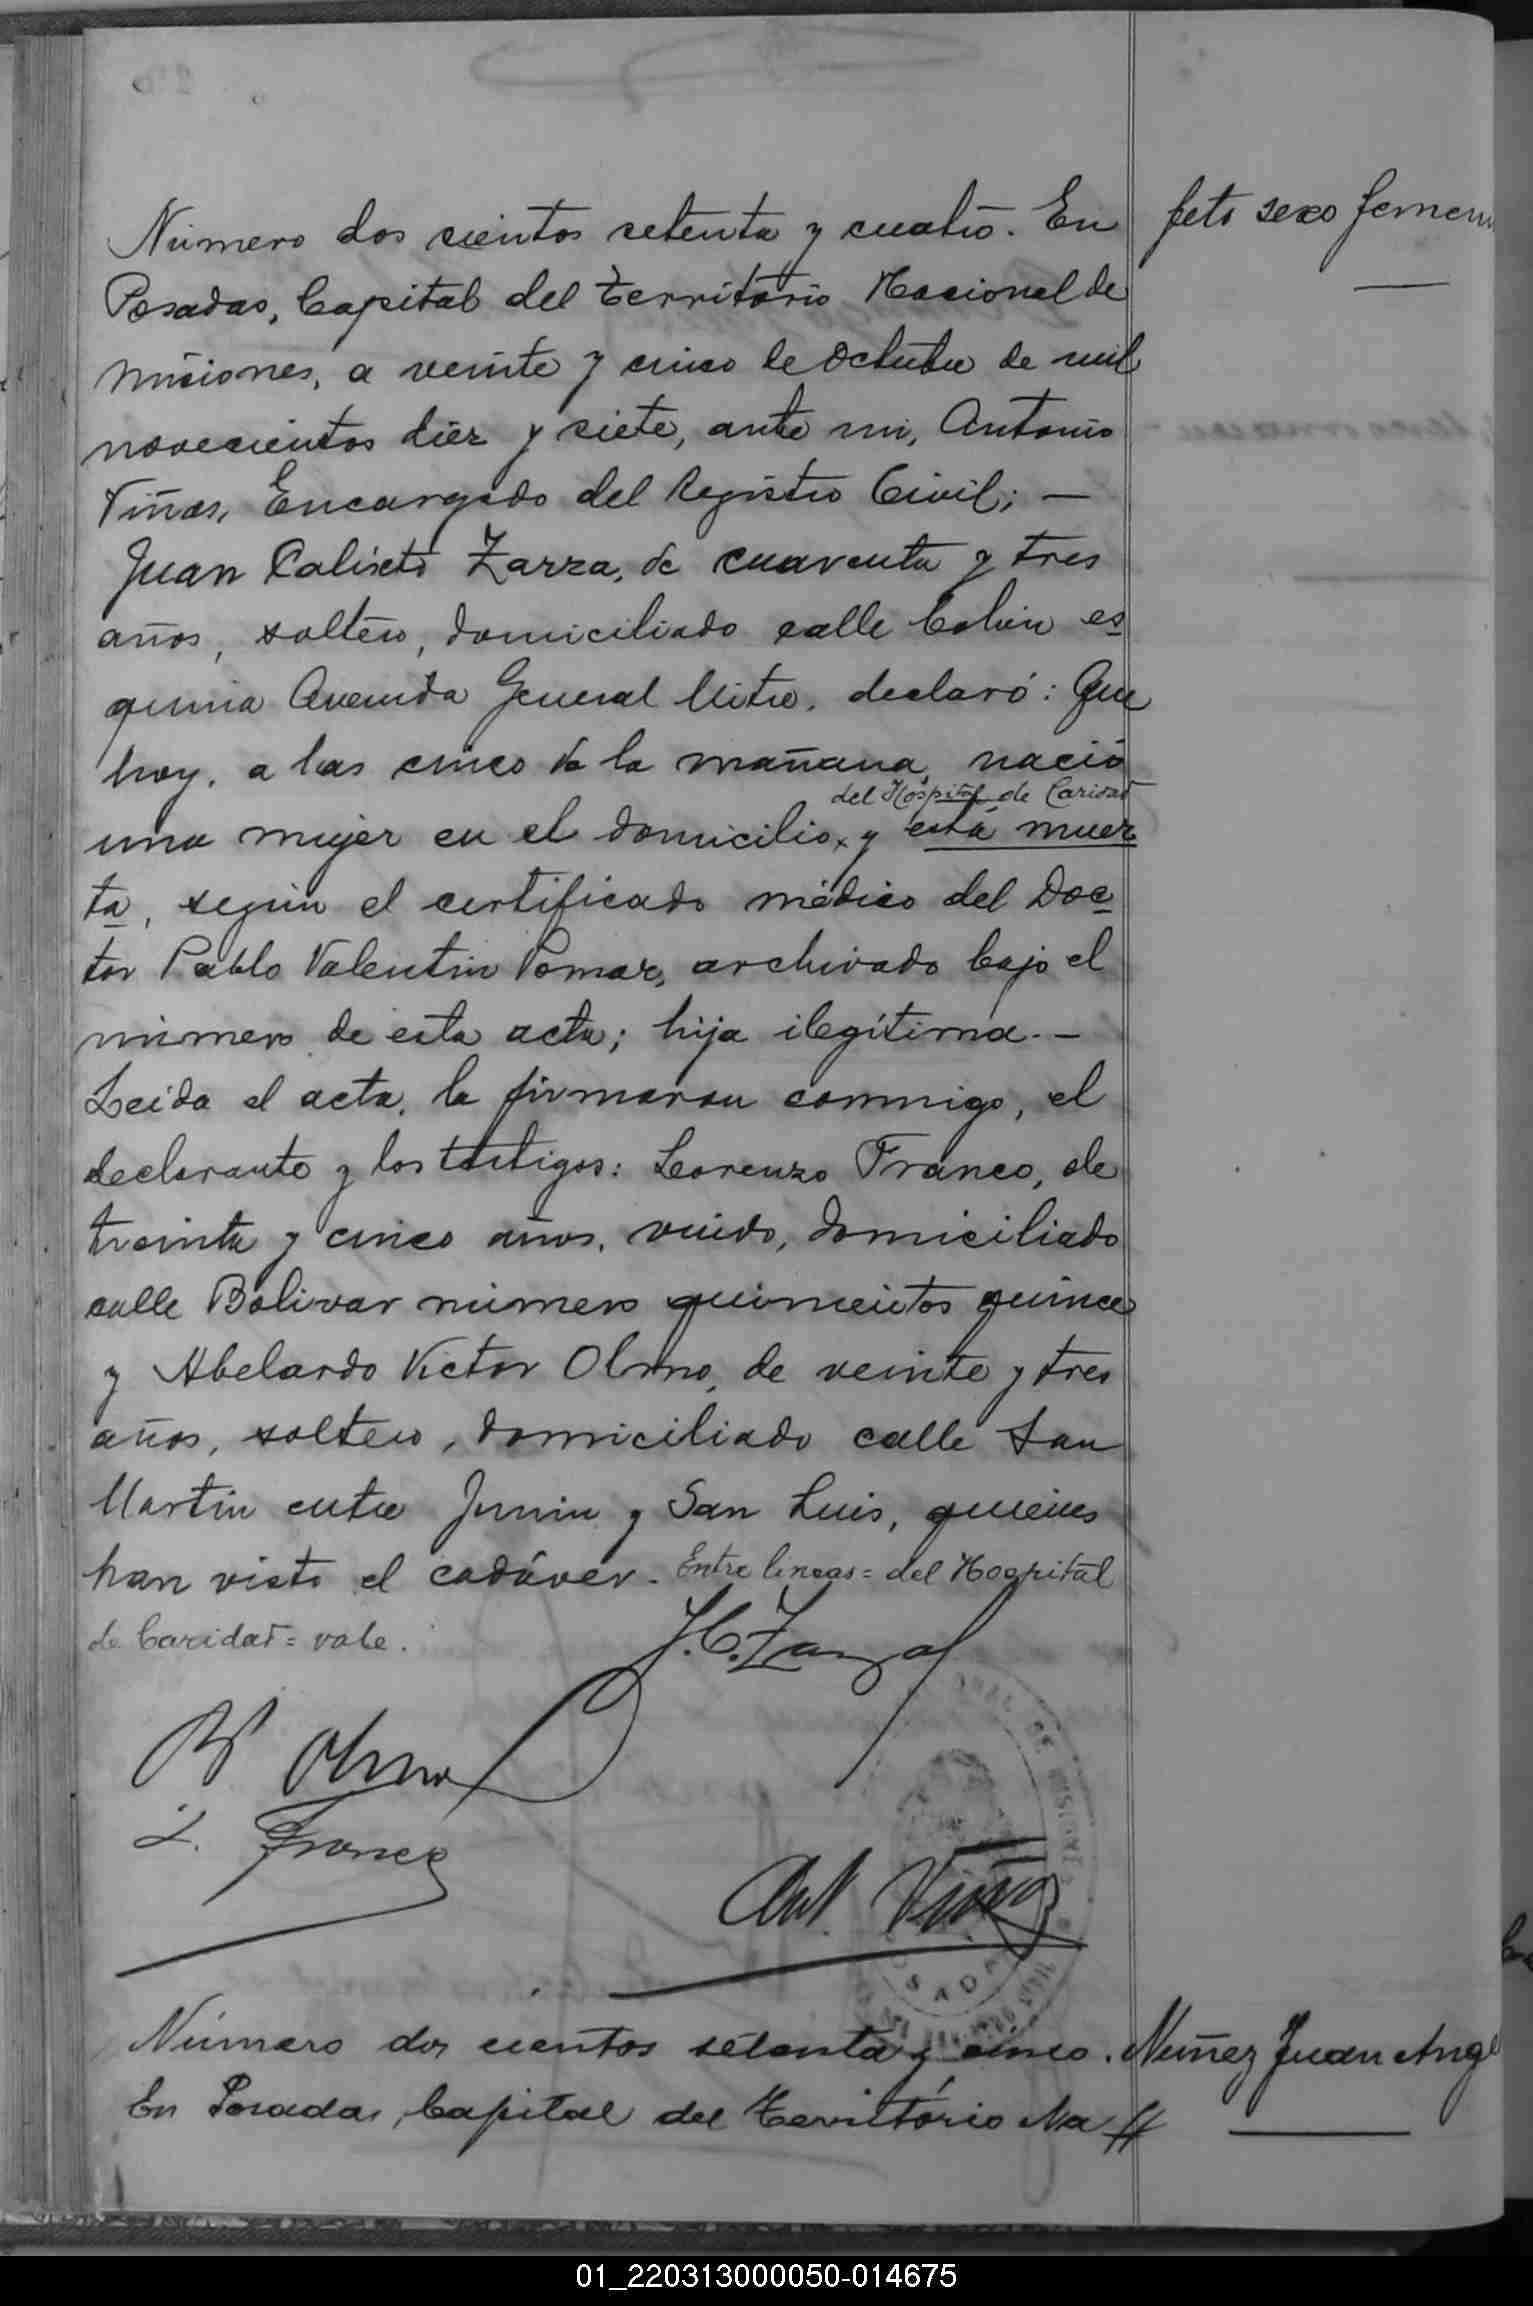 Número dos cientos setenta y cuatro. En
feto sexo femen
Posadas, Capital del Territorio Nacional de
Misiones, a veinte y cinco de Octubre de mil
novecientos diez y siete, ante mi, Antonio
Viñas, Encargado del Registro Civil; —
Juan Calixto Zarza, de cuarenta y tres
años, soltero, domiciliado calle Colon es
quina Avenida General Mitre, declaró: Que
hoy, a las cinco de la mañana, nació
del Hospital de Caridad
una mujer en el domicilio x y está muer
ta, según el certificado médico del Doc
tor Pablo Valentin Pomar, archivado bajo el
número de esta acta; hija ilegítima. —
Leida el acta, la firmaron conmigo, el
declarante y los testigos: Lorenzo Franco, de
treinta y cinco años, viudo, domiciliado
calle Bolivar número quinientos quince
y Abelardo Victor Olmo, de veinte y tres
años, soltero, domiciliado calle San
Martin entre Junin y San Luis, quienes
han visto el cadáver. Entre lineas = del Hospital
de Caridad = vale.
J. C. Zarza
Olmo
L. Franco
Ant. Viñas
Número dos cientos setenta y cinco.
Nuñez Juan Ange
En Posadas, Capital del Território Na
01_220313000050-014675